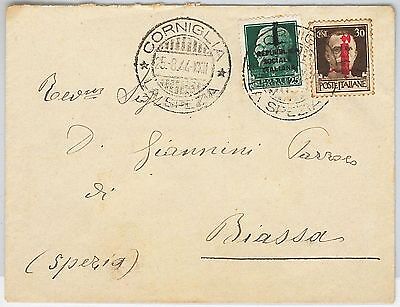 CORNIGLIA
LA SPEZIA
REPUBBLICA
SOCIALE
ITALIANA
30
POSTE ITALIANE
SPEZIA
Rev.mo Sig.
Di Giannini Parroco
di
Biassa
(Spezia)